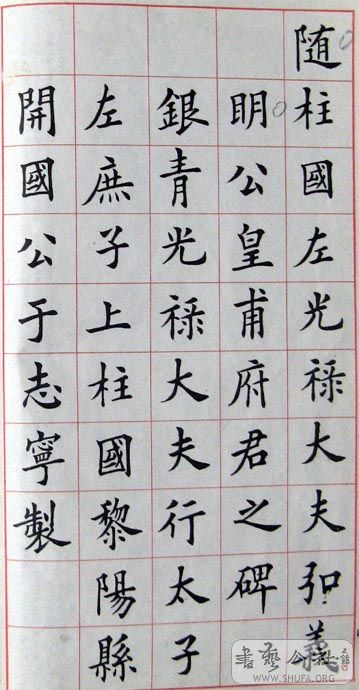 随柱國左光禄大夫弘義
明公皇甫府君之碑
銀青光禄大夫行太子
左庶子上柱國黎陽縣
開國公于志寧製
書藝公社
WWW.SHUFA.ORG